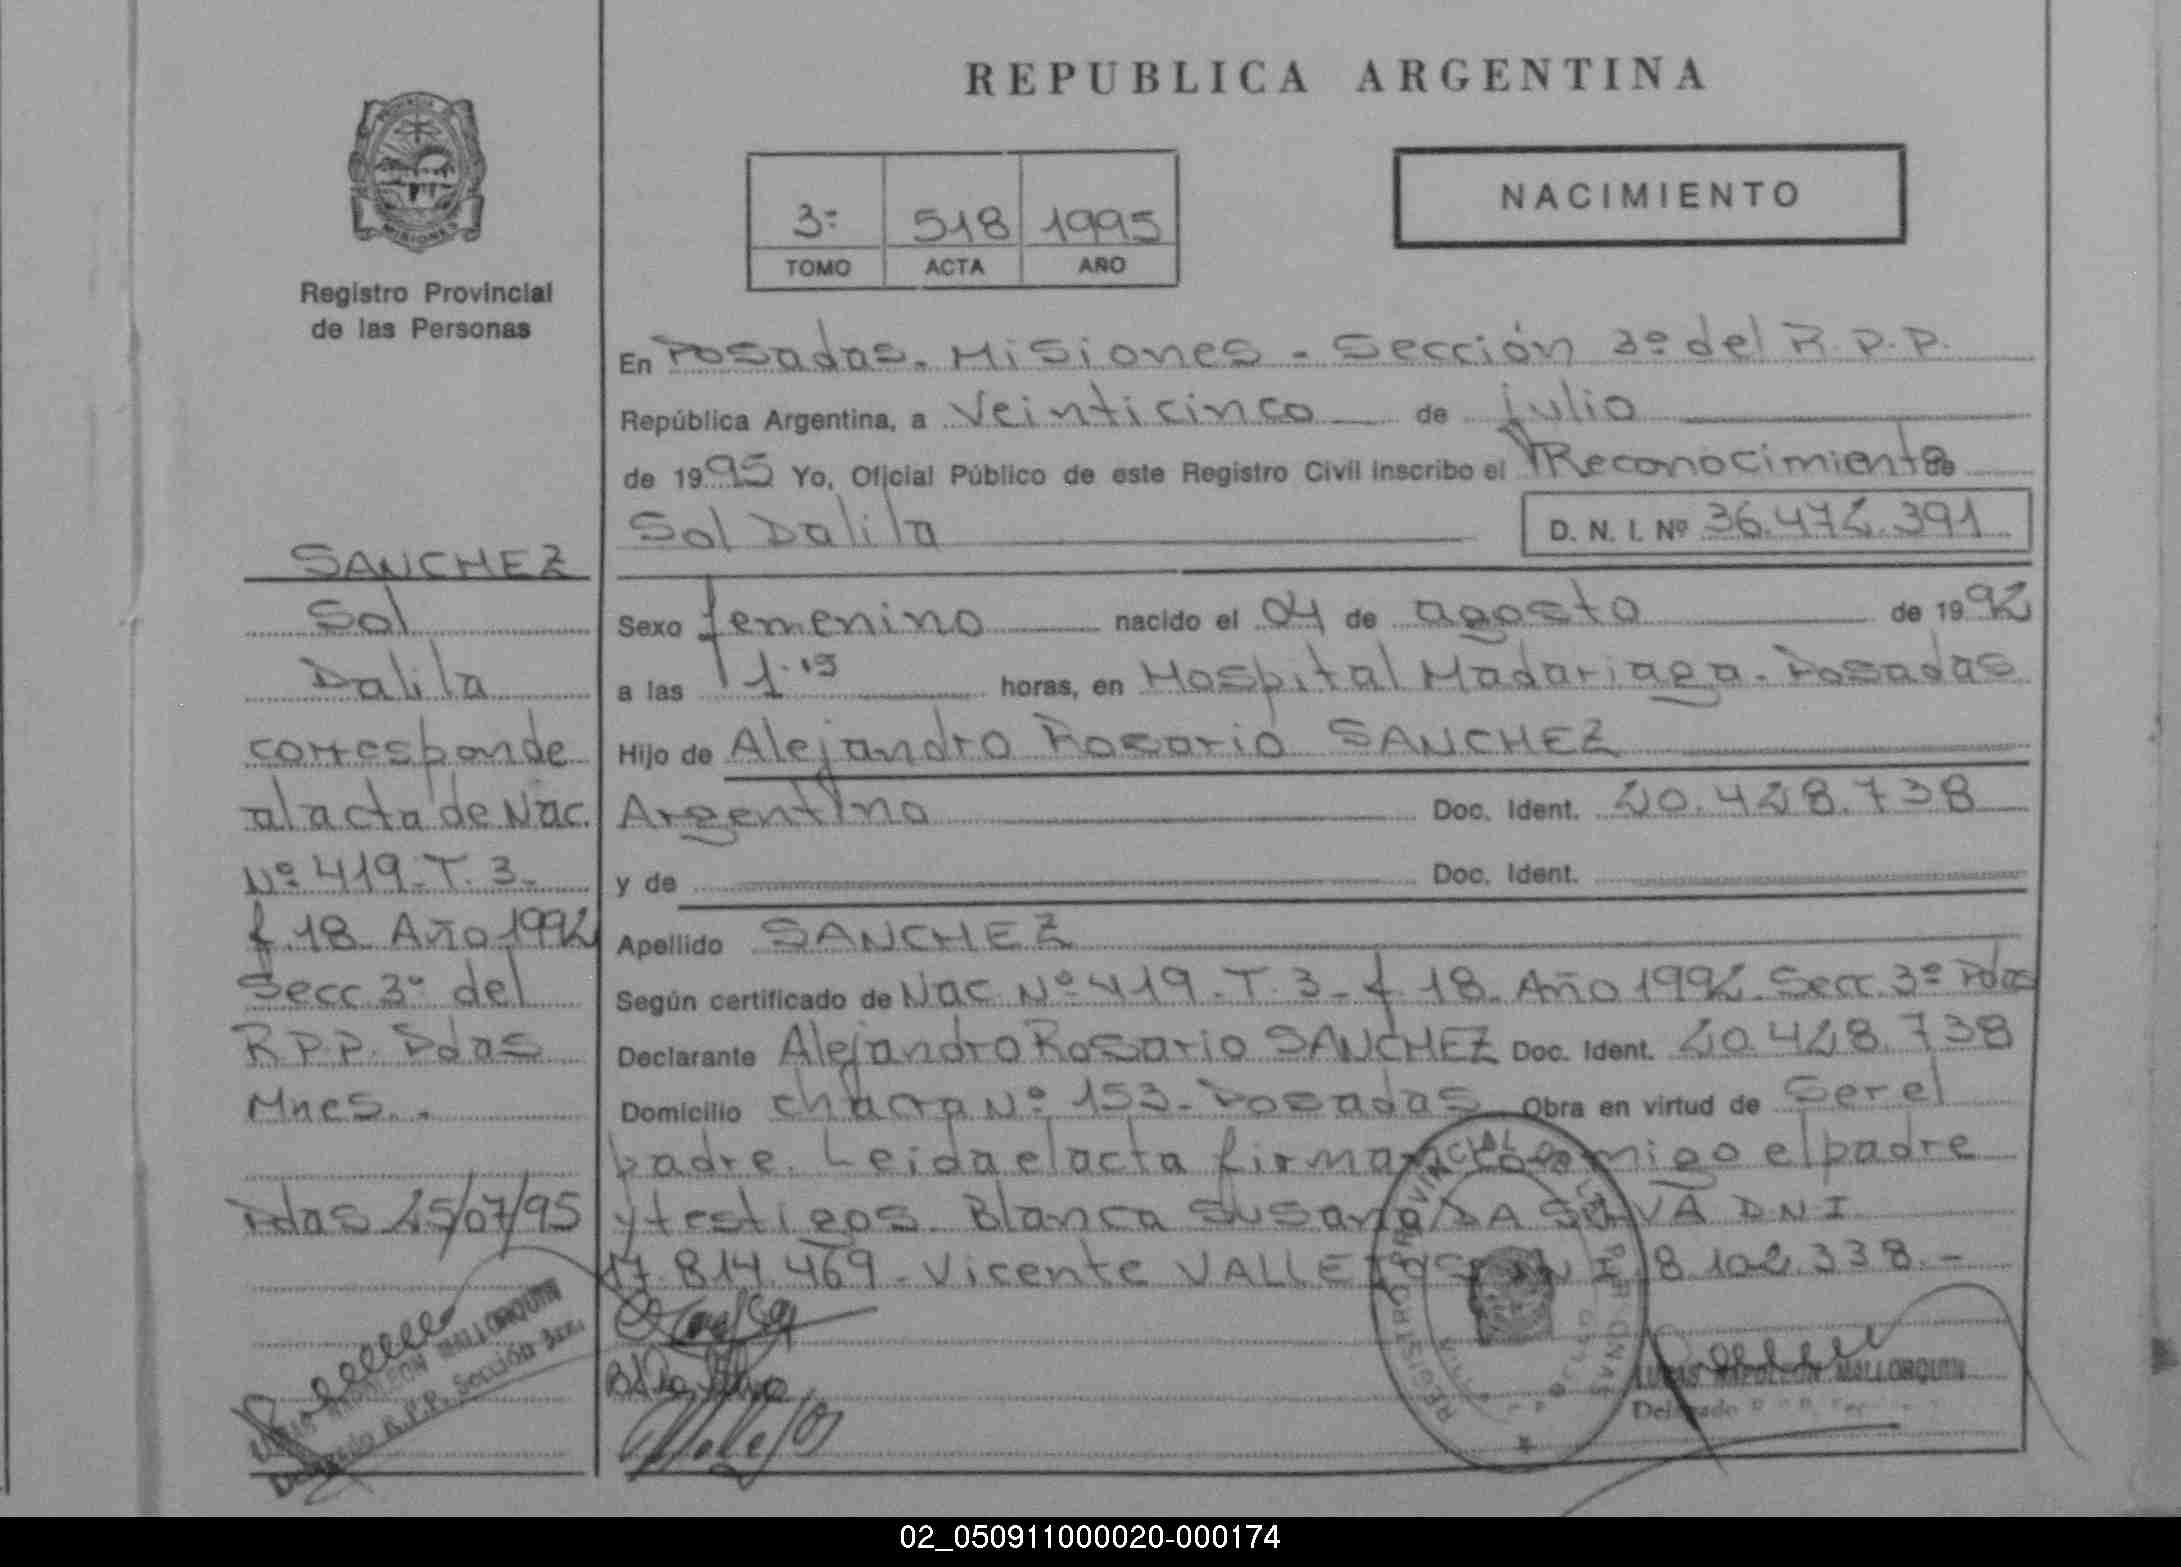 REPUBLICA ARGENTINA
NACIMIENTO
3º 518 1995
TOMO ACTA AÑO
MISIONES
Registro Provincial
de las Personas
SANCHEZ
Sol
Dalila
corresponde
al acta de Nac.
Nº 419. T. 3.
f. 18. Año 1992
Secc. 3º del
R.P.P. Pdas
Mnes..
Pdas 25/07/95
En Posadas. Misiones - Sección 3º del R.P.P.
República Argentina, a Veinticinco de julio
de 1995 Yo, Oficial Público de este Registro Civil inscribo el Reconocimiento de
Sol Dalila D. N. I. Nº 36.472.391
Sexo femenino nacido el 04 de agosto de 1992
a las 1.15 horas, en Hospital Madariaga. Posadas
Hijo de Alejandro Rosario SANCHEZ
Argentino Doc. Ident. 20.428.738
y de Doc. Ident.
Apellido SANCHEZ
Según certificado de Nac. Nº 419. T. 3. f 18. Año 1992. Secc. 3º Pdas
Declarante Alejandro Rosario SANCHEZ Doc. Ident. 20.428.738
Domicilio chacra Nº 153. Posadas Obra en virtud de Ser el
padre. Leida el acta firman conmigo el padre
y testigos. Blanca Susana DA SILVA DNI
17.814.469. Vicente VALLEJOS DNI 8.102.338.-
LUCAS NAPOLEON MALLORQUIN
Delegado R.P.P. Sección 3ra.
REGISTRO PROVINCIAL DE LAS PERSONAS
LUCAS NAPOLEON MALLORQUIN
Delegado
02_050911000020-000174